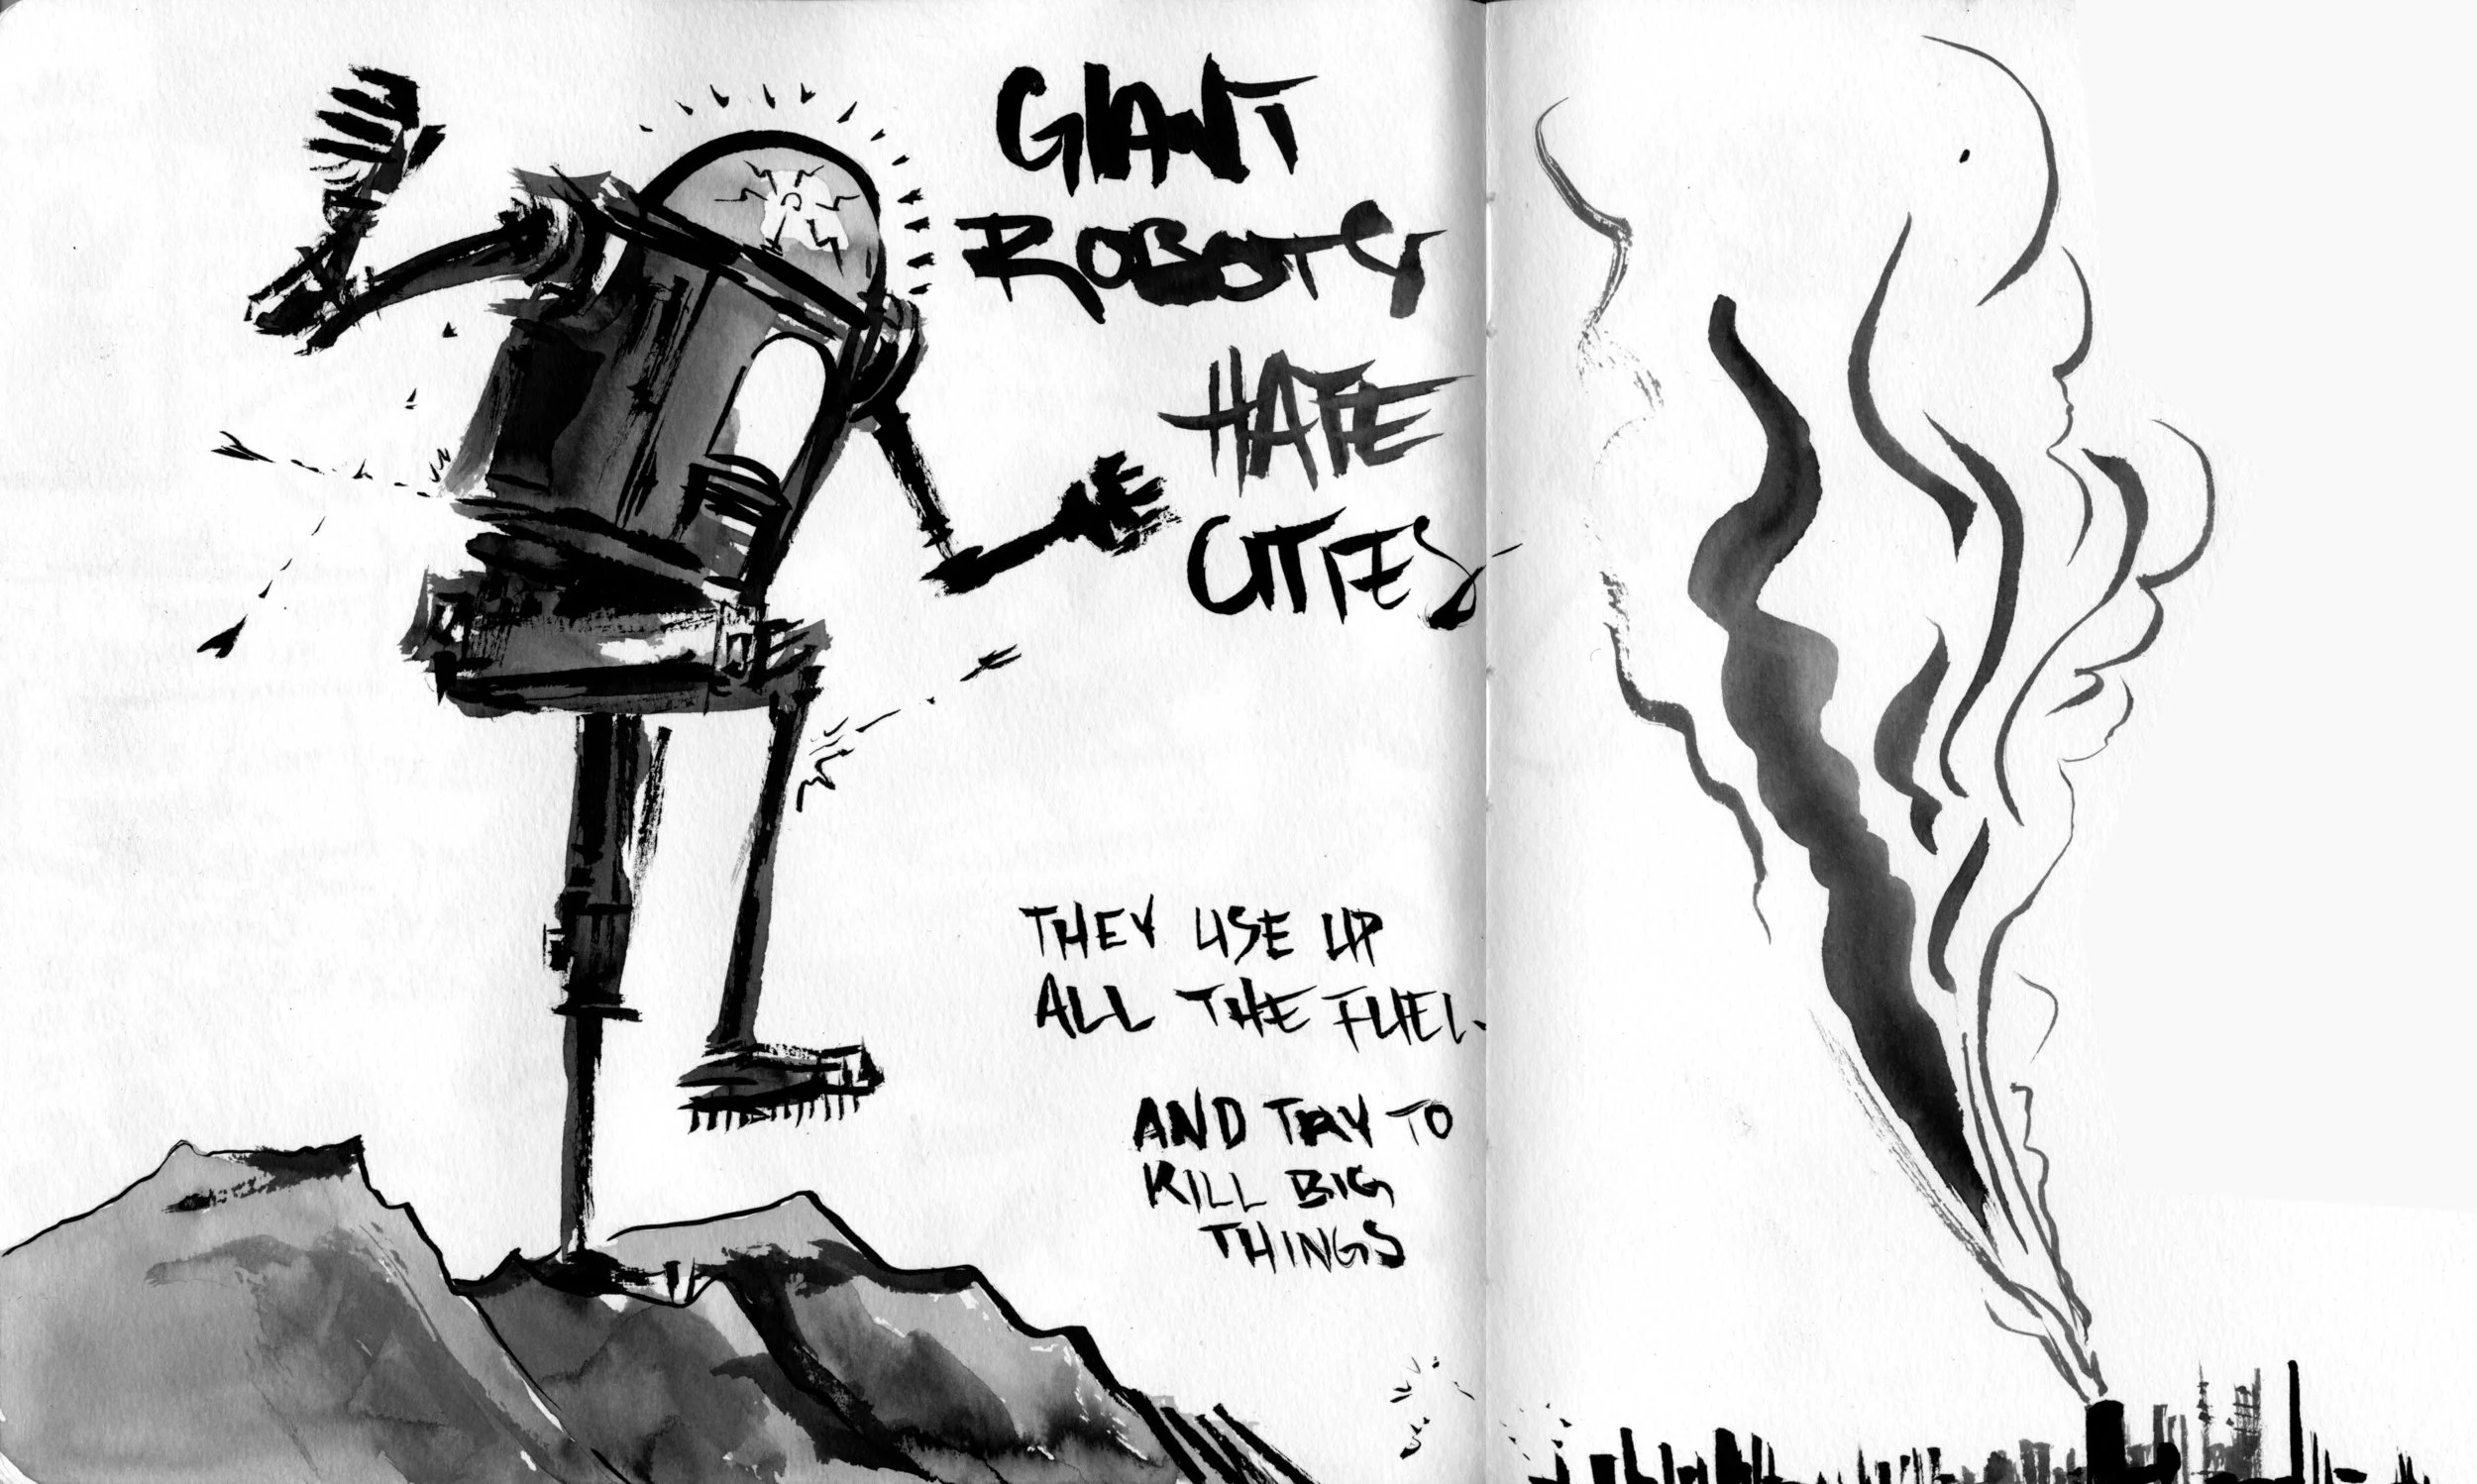 GIANT
ROBOTS
HATE
CITIES
THEY USE UP
ALL THE FUEL.
AND TRY TO
KILL BIG
THINGS